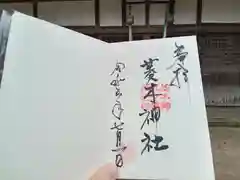 奉拝
菱木神社
令和三年七月一日